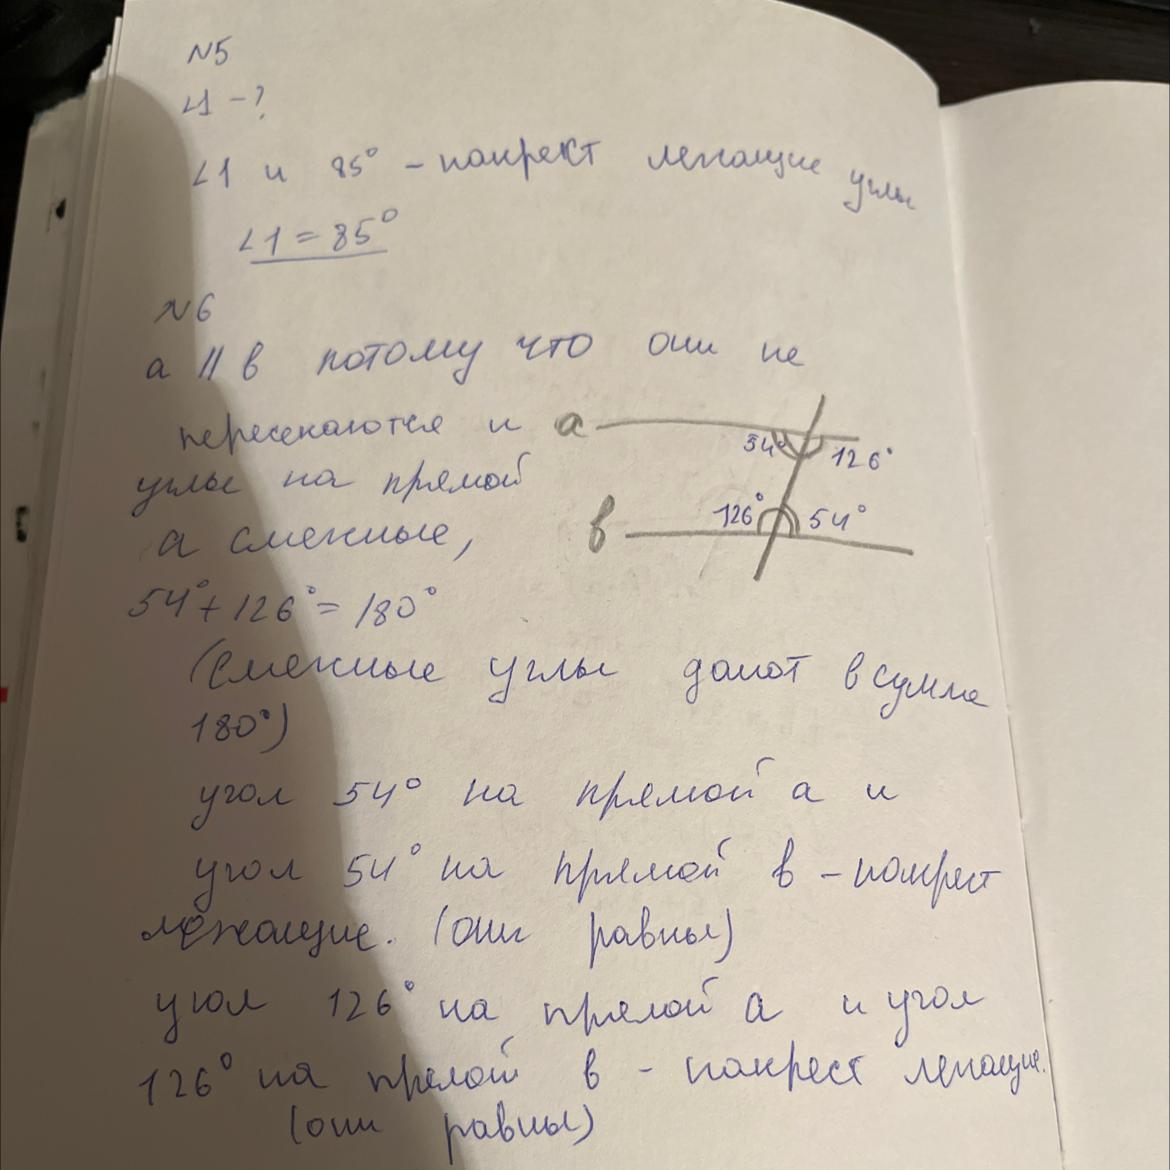 N5
∠1 - ?
∠1 и 85° - накрест лежащие углы
∠1 = 85°
N6
a || b потому что они не
пересекаются и
углы на прямой
a смежные,
54° + 126° = 180°
(смежные углы дают в сумме
180°)
a
54° 126°
b
126° 54°
угол 54° на прямой a и
угол 54° на прямой b - накрест
лежащие. (они равны)
угол 126° на прямой a и угол
126° на прямой b - накрест лежащие.
(они равны)